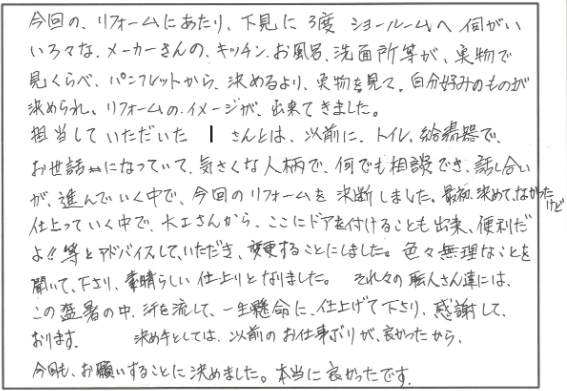 今回の、リフォームにあたり、下見に3度 ショールームへ伺がい
いろ々な、メーカーさんの、キッチン、お風呂、洗面所等が、実物で
見くらべ、パンフレットから、決めるより、実物を見て、自分好みのものが
決められ、リフォームの、イメージが、出来てきました。
担当して いただいた さんとは、以前に、トイレ、給湯器で、
お世話になっていて、気さくな人柄で、何でも相談でき、話し合い
が、進んでいく中で、今回のリフォームを決断しました。最初、決めて、なかったけど
仕上っていく中で、大工さんから、ここにドアを付けることも出来、便利だ
よ!!等とアドバイスして、いただき、変更することにしました。色々無理なことを
聞いて、下さり、素晴らしい仕上りとなりました。それ々の職人さん達には、
この猛暑の中、汗を流して、一生懸命に、仕上げて下さり、感謝して、
おります。 決め手としては、以前のお仕事ぶりが、良かったから、
今回も、お願いすることに決めました。本当に良かったです。